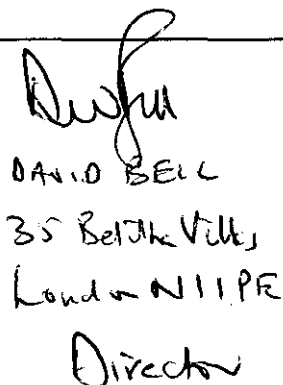 DAVID BELL
35 Belitha Villas
London N1 1PE
Director